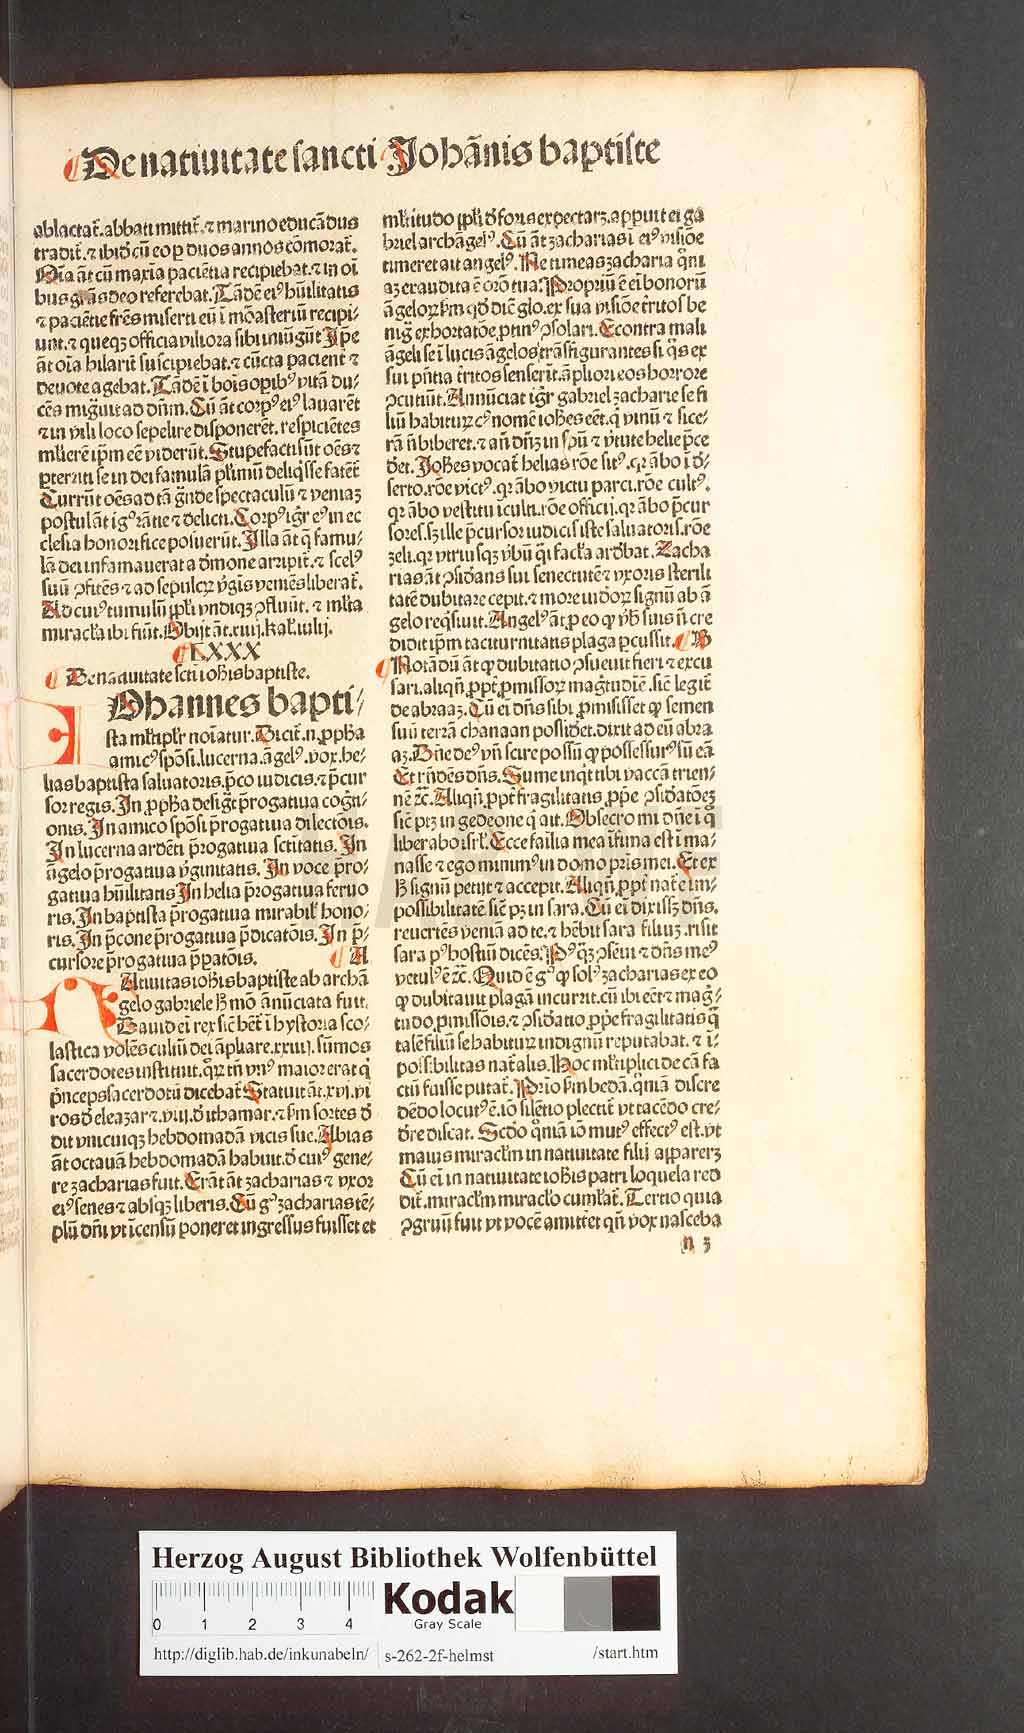 De natiuitate sancti Johānis baptiste
ablactat̄. abbati mittit̄. ⁊ marino educādus
tradit̄. ⁊ ibidē cū eo ꝑ duos annos cōmorat̄.
Oīa āt cū maxīa paciētia recipiebat. ⁊ in oī
bus gr̄as deo referebat. Tādē eiꝰ hūilitatis
⁊ paciētie fr̄es miserti eū ī mōasteriū recipi⸗
unt. ⁊ queqꝫ officia viliora sibi iniūgūt Ip̄e
āt oīa hilarit̄ suscipiebat. ⁊ cūcta pacient̄ ⁊
deuote agebat. Tādē ī bōis opibꝰ vitā du⸗
cēs migͣuit ad dn̄m. Cū āt corpꝰ eiꝰ lauarēt
⁊ in vili loco sepelire disponerēt. respiciētes
mlierē ip̄m eē viderūt. Stupefacti sūt oēs ⁊
ꝑterriti se in dei famulā pl̄imū deliq̄sse fatēt̄
Currūt oēs ad tā gͣnde spectaculū ⁊ veniaꝫ
postulāt igꝰrātie ⁊ delicti. Corpꝰ igr̄ eꝰ in ec
clesia honorifice posuerūt. Illa āt q̄ famu⸗
lā dei infamauerat a dēmone arripit̄. ⁊ scelꝰ
suū ꝯfitēs ⁊ ad sepulcꝝ v̄gīs veniēs liberat̄.
Ad cuiꝰ tumulū ppl̄i vndiqꝫ ꝯfluūt. ⁊ ml̄ta
miracl̄a ibi fiūt. Obijt āt. xiiij. kal̄. iulij.
LXXX
De natiuitate scti iohīs baptiste.
Ohannes bapti⸗
sta ml̄tiplr̄ noīatur. Dicit̄. n. ꝓph̄a
amicꝰ spōsi. lucerna. āgelꝰ. vox. he⸗
lias baptista saluatoris. p̄co iudicis. ⁊ p̄cur
sor regis. In ꝓph̄a desigt̄ p̄rogatiua cogti⸗
onis. In amico spōsi p̄rogatiua dilectōis.
In lucerna ardēti p̄rogatiua sctītatis. In
āgelo p̄rogatiua v̄ginitatis. In voce p̄ro⸗
gatiua hūilitatis In helia p̄rogatiua feruo
ris. In baptista p̄rogatiua mirabil̄ hono⸗
ris. In p̄cone p̄rogatiua p̄dicatōis. In p̄⸗
cursore p̄rogatiua p̄ꝑatōis. A
Atiuitas iohīs baptiste ab archā
gelo gabriele h̄ mō ānūciata fuit.
Dauid eī rex sic̄ hēt̄ ī hystoria sco⸗
lastica volēs cultū dei āpliare. xxiiij. sūmos
sacerdotes instituit. quoꝝ tn̄ vnꝰ maior erat q̇
p̄nceps sacerdotū dicebat̄ Statuit āt. xvi. vi
ros d̄ eleazar ⁊. viij. d̄ ithamar. ⁊ fm̄ sortes d̄
dit vnicuiqꝫ hebdomadā vicis sue. Abias
āt octauā hebdomadā habuit. d̄ cuiꝰ gene⸗
re zacharias fuit. Erāt āt zacharias ⁊ vxor
eiꝰ senes ⁊ absqꝫ liberis. Cū gͦ zacharias tē⸗
plū dn̄i vt īcensū poneret ingressus fuisset et
ml̄titudo ppl̄i d̄ foris expectarꝫ. apꝑuit ei ga
briel archāgelꝰ. Cū āt zacharias ī eiꝰ visiōe
timeret ait angelꝰ. Ne timeas zacharia qm̄
az exaudita ē orō tua. Propriū ē eī bonorū
āgeloꝝ fm̄ qd̄ dic̄ glo. ex sua visiōe t̄ritos be
nigͣ exhortatōe ꝓtinꝰ ꝯsolari. Econtra mali
āgeli se ī lucis āgelos trāsfigurantes si q̄s ex
sui pn̄tia t̄ritos senserīt. āpliori eos horrore
ꝯcutiūt. Annūciat igr̄ gabriel zacharie se fi
liū habituꝝ cꝰ nomē ioh̄es eēt. q̇ vinū ⁊ sice⸗
rā n̄ biberet. ⁊ añ dn̄ꝫ in sp̄ū ⁊ v̄tute helie p̄ce
det. Ioh̄es vocat̄ helias rōe sitꝰ. qꝛ ābo ī d̄⸗
serto. rōe victꝰ. qꝛ ābo victu parci. rōe cultꝰ.
qꝛ ābo vestitu īculti. rōe officij. qꝛ ābo p̄cur
sores. sꝫ ille p̄cursor iudicis iste saluatoris. rōe
zeli. qꝛ vtriusqꝫ v̄bū q̄i facl̄a ardebat. Zacha
rias āt ꝯsid̄ans sui senectutē ⁊ vxoris sterili
tatē dubitare cepit. ⁊ more iudeoꝝ signū ab ā
gelo reqsiuit. Angelꝰ āt ꝓ eo ꝙ v̄b̄ suis n̄ cre
didit ip̄m taciturnitatis plaga ꝑcussit. B
Notādū āt ꝙ dubitatio ꝯsueuit fieri ⁊ excu
sari. aliqñ. ꝓpt̄ ꝓmissoꝝ magͣtudīē. sic̄ legit̄
de abraaꝫ. Cū eī dn̄s sibi ꝓmisisset ꝙ semen
suū terrā chanaan possidet. dixit ad eū abra
aꝫ. Dn̄e deꝰ vn̄ scire possū ꝙ possessurꝰ sū eā
Et r̄ndēs dn̄s. Sume inqt tibi vaccā trien⸗
nē ⁊c̄. Aliqñ. ꝓpt̄ fragilitatis ꝓpe ꝯsid̄atōeꝫ
sic̄ pꝫ in gedeone q̇ ait. Obsecro mi dn̄e ī q̇
liberabo isrl̄. Ecce familia mea īfima est ī ma⸗
nasse ⁊ ego minimꝰ in domo pr̄is mei. Et ex
h̄ signū petijt ⁊ accepit. Aliqñ. ꝓpt̄ nat̄e im⸗
possibilitatē sic̄ pꝫ in sara. Cū eī dixissꝫ dn̄s.
reuertēs veniā ad te. ⁊ hēbit sara filiuꝫ. risit
sara pꝰ hostiū dicēs. Postqꝫ ꝯsenui ⁊ dn̄s meꝰ
vetulꝰ ē ⁊c̄. Quid ē gͦ ꝙ solꝰ zacharias ex eo
ꝙ dubitauit plagā incurrit. cū ibi eēt ⁊ magͣ⸗
tudo ꝓmissōis. ⁊ ꝯsid̄atio ꝓpe fragilitatis q̄
talē filiū se habituꝝ indignū reputabat. ⁊ ī⸗
possibilitas nat̄alis. Hoc ml̄tiplici de cā fa
ctū fuisse putat̄. Prīo fm̄ bedā. qm̄ā discre
dēdo locutꝰ ē. iō silētio plectit̄ vt tacēdo cre⸗
dere discat. Scdō qm̄ā iō mutꝰ effectꝰ est. vt
maius miracl̄m in natiuitate filij apparerꝫ
Cū eī in natiuitate iohīs patri loquela red
dit̄. miracl̄m miracl̄o cumlat̄. Tertio quia
ꝯgruū fuit vt vocē amitt̄et qn̄ vox nasceba
n 3
HAB WF
Herzog August Bibliothek Wolfenbüttel
0 1 2 3 4
Kodak
Gray Scale
http://diglib.hab.de/inkunabeln/ s-262-2f-helmst /start.htm